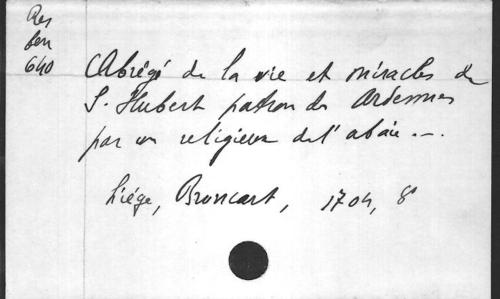 Res
ben
640
Abrégé de la vie et miracles de
S. Hubert patron des Ardennes
par un religieux de l'abaie ...
Liége, Broncart, 1704, 8°